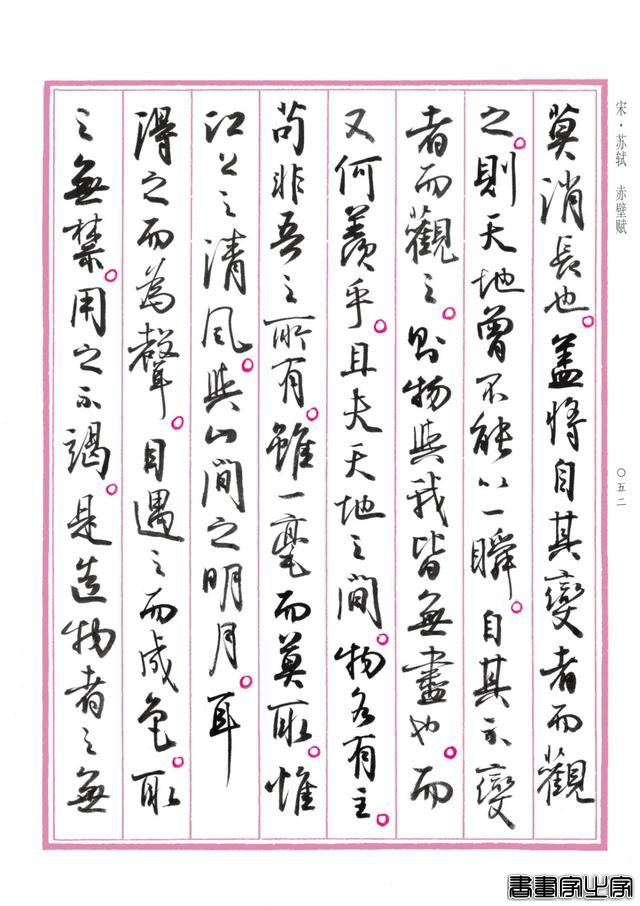 宋·苏轼 赤壁赋
〇五二
莫消長也。盖將自其變者而觀
之。則天地曾不能以一瞬。自其不變
者而觀之。則物與我皆無盡也。而
又何羨乎。且夫天地之間。物各有主。
苟非吾之所有。雖一毫而莫取。惟
江上之清風。與山間之明月。耳
得之而為聲。目遇之而成色。取
之無禁。用之不竭。是造物者之無
書畫